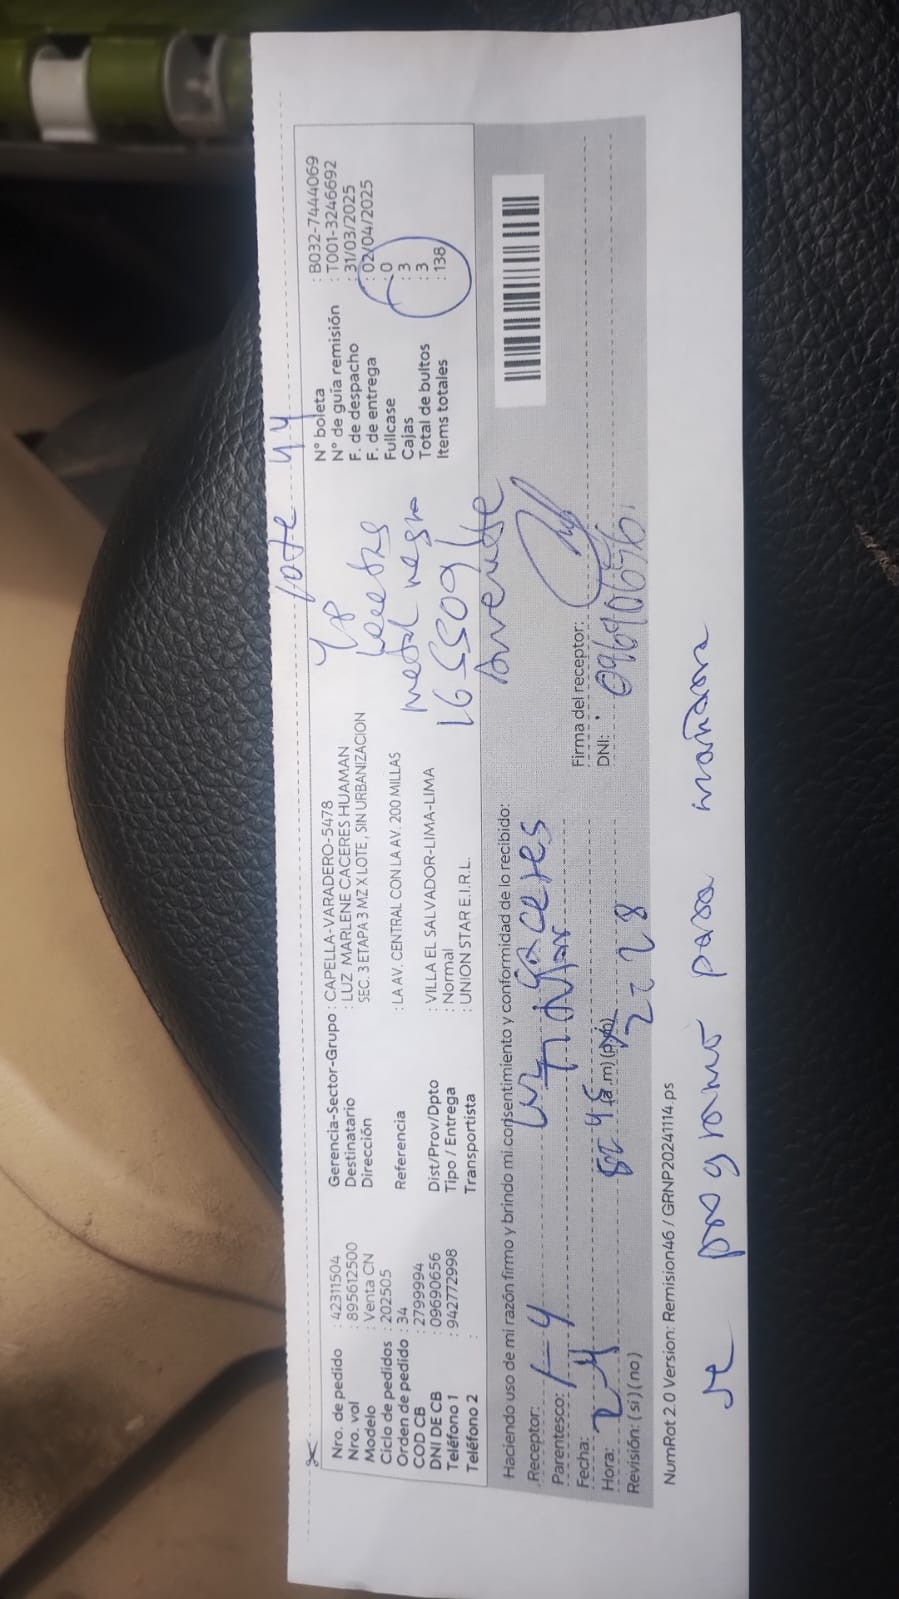 Poste 44
Nro. de pedido : 42311504
Nro. vol : 895612500
Modelo : Venta CN
Ciclo de pedidos : 202505
Orden de pedido : 34
COD CB : 2799994
DNI DE CB : 09690656
Teléfono 1 : 942772998
Teléfono 2 :
Gerencia-Sector-Grupo : CAPELLA-VARADERO-5478
Destinatario : LUZ MARLENE CACERES HUAMAN
Dirección SEC. 3 ETAPA 3 MZ X LOTE , SIN URBANIZACION
Referencia : LA AV. CENTRAL CON LA AV. 200 MILLAS
Dist/Prov/Dpto : VILLA EL SALVADOR-LIMA-LIMA
Tipo / Entrega : Normal
Transportista : UNION STAR E.I.R.L.
metal negra
N° boleta : B032-7444069
N° de guía remisión : T001-3246692
F. de despacho : 31/03/2025
F. de entrega : 02/04/2025
Fullcase : 0
Cajas : 3
Total de bultos : 3
Items totales : 138
Haciendo uso de mi razón firmo y brindo mi consentimiento y conformidad de lo recibido:
Receptor: 1-4 Luz Caceres
Parentesco: Titular
Fecha: 2-4
Hora: (a.m) (p.m)
Revisión: ( si ) ( no )
Firma del receptor:
DNI: 09690656
NumRot 2.0 Version: Remision46 / GRNP20241114.ps
se programo para mañana